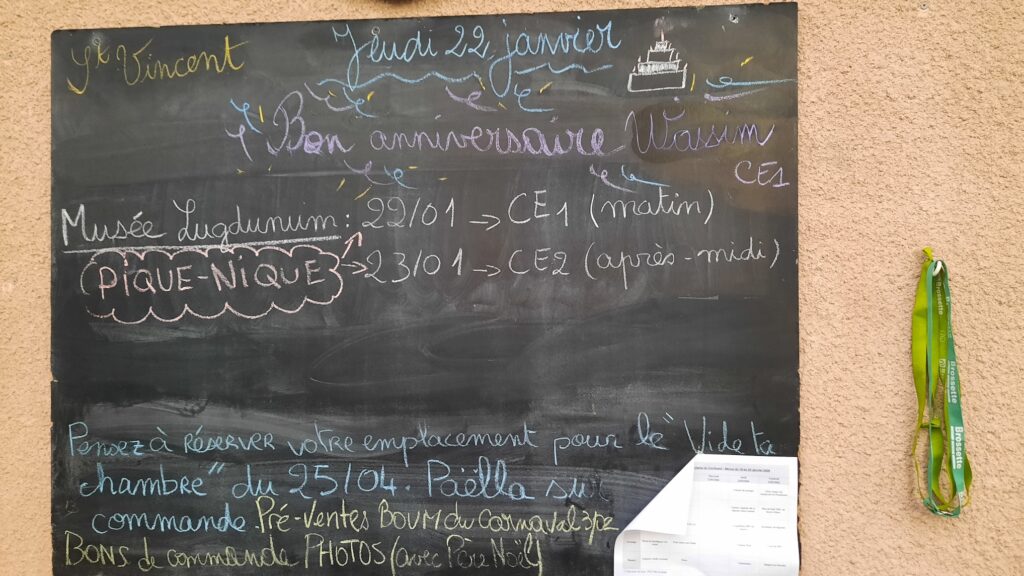 St Vincent
Jeudi 22 janvier
Bon anniversaire Waïsim
CE1
Musée Lugdunum : 22/01 → CE1 (matin)
(PIQUE-NIQUE → 23/01 → CE2 (après-midi)
Pensez à RÉSERVER votre emplacement pour le "Vide ta
chambre" du 25/04. Paëlla sur
commande. Pré-Ventes BOUM du Carnaval
BONS de commande PHOTOS (avec Père Noël)
Brossette
Brossette